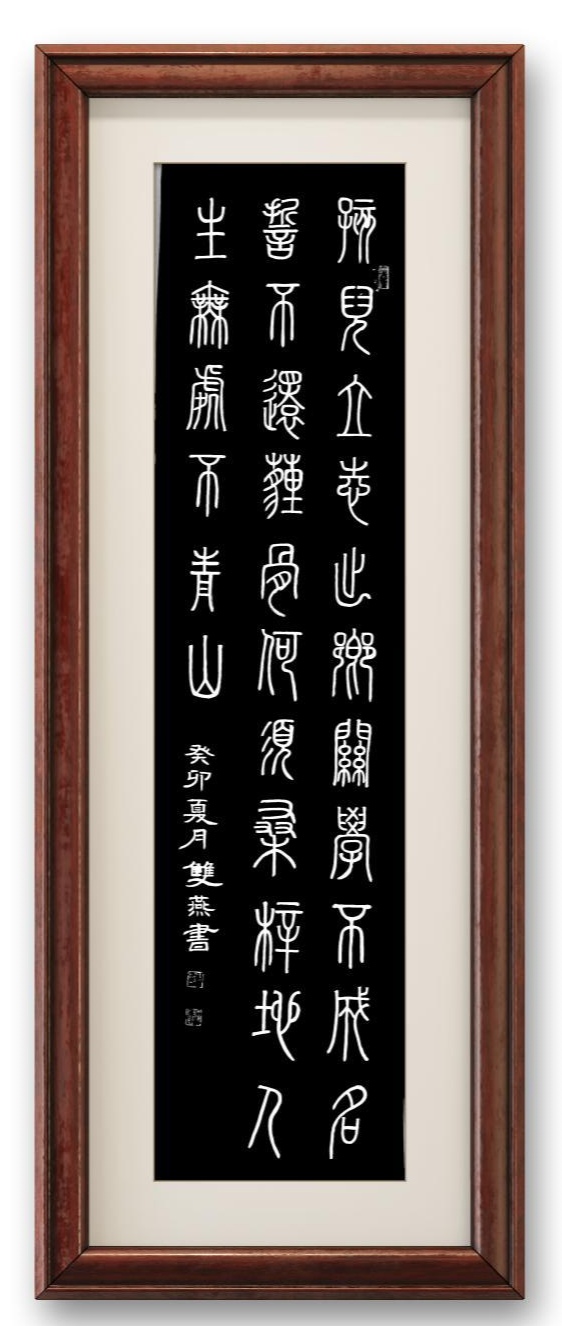 孩兒立志出鄉關學不成名
誓不還薶骨何須桑梓地人
生無處不青山
癸卯夏月雙燕書